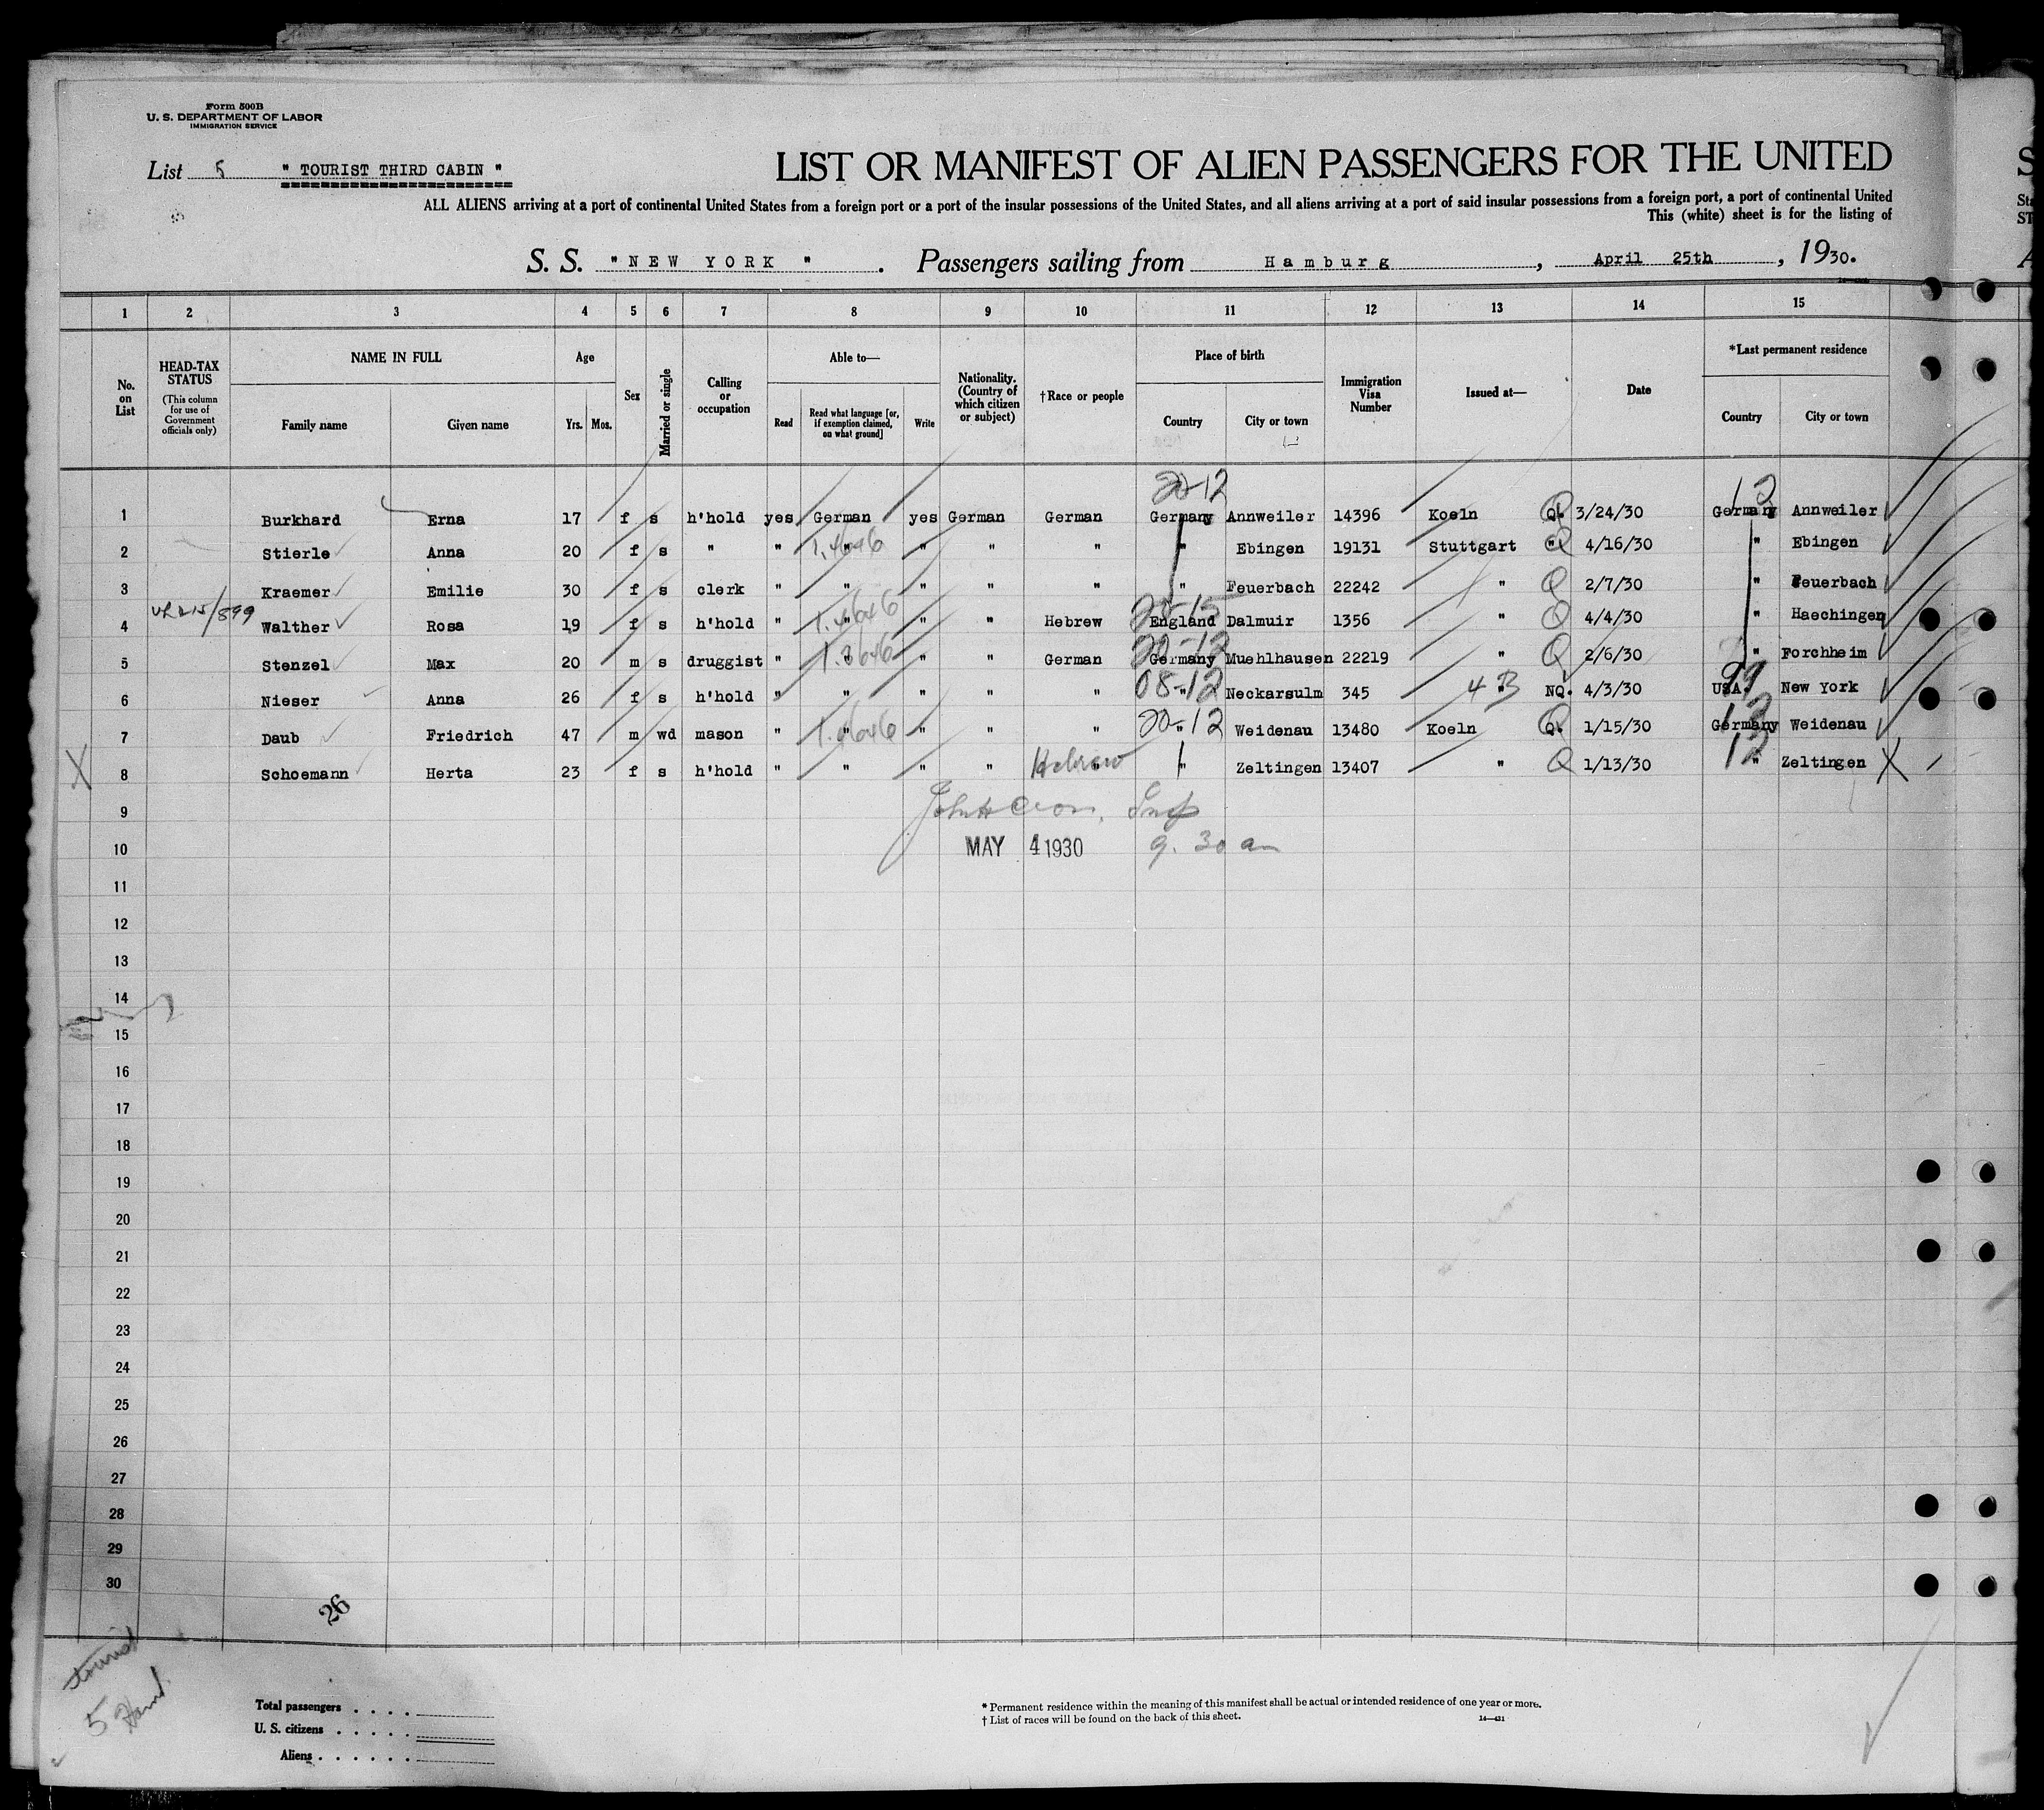 Form 500B
U. S. DEPARTMENT OF LABOR
IMMIGRATION SERVICE
List 5 " TOURIST THIRD CABIN "
LIST OR MANIFEST OF ALIEN PASSENGERS FOR THE UNITED
ALL ALIENS arriving at a port of continental United States from a foreign port or a port of the insular possessions of the United States, and all aliens arriving at a port of said insular possessions from a foreign port, a port of continental United
This (white) sheet is for the listing of
S. S. " NEW YORK " . Passengers sailing from Hamburg , April 25th , 1930.
1 2 3 4 5 6 7 8 9 10 11 12 13 14 15
No. on List
HEAD-TAX STATUS (This column for use of Government officials only)
NAME IN FULL Family name Given name
Age Yrs. Mos.
Sex
Married or single
Calling or occupation
Able to— Read Read what language [or, if exemption claimed, on what ground] Write
Nationality. (Country of which citizen or subject)
†Race or people
Place of birth Country City or town
Immigration Visa Number
Issued at—
Date
*Last permanent residence Country City or town
20-12 12
1 Burkhard Erna 17 f s h'hold yes German yes German German Germany Annweiler 14396 Koeln Q. 3/24/30 Germany Annweiler
2 Stierle Anna 20 f s " " " " " " " Ebingen 19131 Stuttgart Q 4/16/30 " Ebingen
3 Kraemer Emilie 30 f s clerk " " " " " " Feuerbach 22242 " Q 2/7/30 " Feuerbach
4 Walther Rosa 19 f s h'hold " " " " Hebrew England Dalmuir 1356 " Q 4/4/30 " Haechingen
5 Stenzel Max 20 m s druggist " " " " German 20-12 Germany Muehlhausen 22219 " Q 2/6/30 " Forchheim
6 Nieser Anna 26 f s h'hold " " " " " 08-12 " Neckarsulm 345 4 B " NQ. 4/3/30 99 USA. New York
7 Daub Friedrich 47 m wd mason " " " " " 20-12 " Weidenau 13480 Koeln Q. 1/15/30 12 Germany Weidenau
X 8 Schoemann Herta 23 f s h'hold " " " " Hebrew " " Zeltingen 13407 " Q 1/13/30 12 " Zeltingen X
9
10 MAY 4 1930 9. 30 am
11
12
13
14
15
16
17
18
19
20
21
22
23
24
25
26
27
28
29
30
26
tourist
5
Total passengers . . . .
U. S. citizens . . . . .
Aliens . . . . . .
* Permanent residence within the meaning of this manifest shall be actual or intended residence of one year or more.
† List of races will be found on the back of this sheet.
14—431